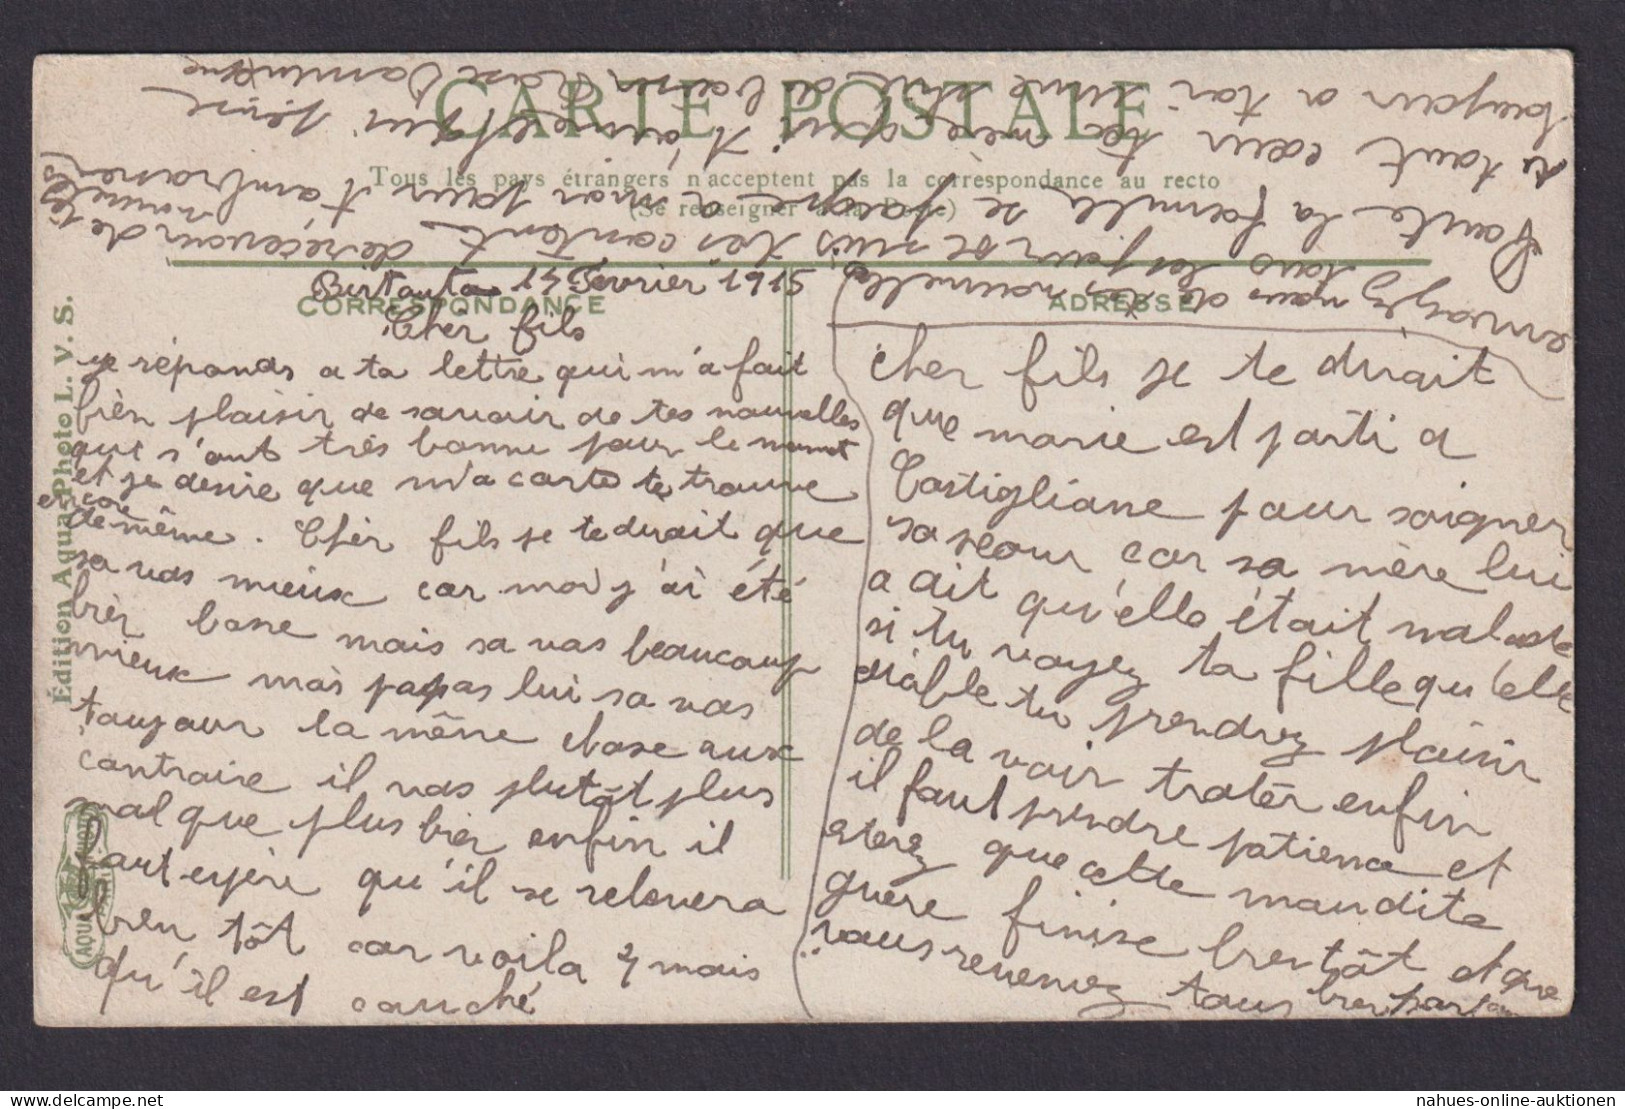 CARTE POSTALE
Tous les pays étrangers n'acceptent pas la correspondance au recto
(Se renseigner à la Poste)
CORRESPONDANCE
ADRESSE
Édition Aqua-Photo L. V. S.
14 Fevrier 1915
Cher fils
je réponds a ta lettre qui m'a fait
bièn plaisir de savoir de tes nouvelles
que s'ont très bonne pour le momet
et je desire que m'a carte te trouve
encore
de même. Chèr fils je te dirait que
sa vas mieux car moi j'ai été
bièn basse mais sa vas beaucoup
mieux mais papas lui sa vas
toujour la même chose aux
contraire il vas plutôt plus
mal que plus bien enfin il
faut espère qu'il se relevera
bien tôt car voila 4 mais
qu'il est couché
cher fils je te dirait
que marie est parti a
Castigliane pour soigner
sa sœur car sa mère lui
a dit qu'elle était malade
si tu voyez ta fille qu'elle
diable tu prendrez plaisir
de la voir trater enfin
il faut prendre patience et
que cette maudite
guere finise bientôt et que
vous revenez tous bien
envoyez nous de tes nouvelles
tous les jour je suis très contente de recevoir de tes nouvelles
Toute la famille se joigne a moi pour t'ambrasser
de tout cœur ta mère qui t'aime et qui pense
toujour a toi